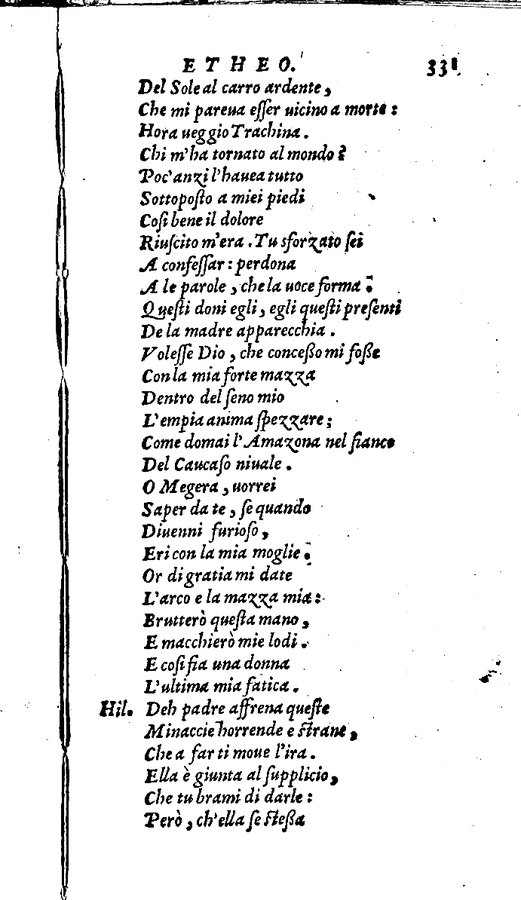 ETHEO. 331
Del Sole al carro ardente,
Che mi pareua eſſer uicino a morte:
Hora ueggio Trachina.
Chi m'ha tornato al mondo?
Poc'anzi l'hauea tutto
Sottopoſto a miei piedi
Coſi bene il dolore
Riuſcito m'era. Tu sforzato ſei
A confeſſar: perdona
A le parole, che la uoce forma.
Queſti doni egli, egli queſti preſenti
De la madre apparecchia.
Voleſſe Dio, che conceßo mi foße
Con la mia forte mazza
Dentro del ſeno mio
L'empia anima ſpezzare;
Come domai l'Amazona nel fianco
Del Caucaſo niuale.
O Megera, uorrei
Saper da te, ſe quando
Diuenni furioſo,
Eri con la mia moglie.
Or di gratia mi date
L'arco e la mazza mia:
Brutterò queſta mano,
E macchierò mie lodi.
E coſi fia una donna
L'ultima mia fatica.
Hil. Deh padre affrena queſte
Minaccie horrende e ſtrane,
Che a far ti moue l'ira.
Ella è giunta al ſupplicio,
Che tu brami di darle:
Però, ch'ella ſe ſteßa